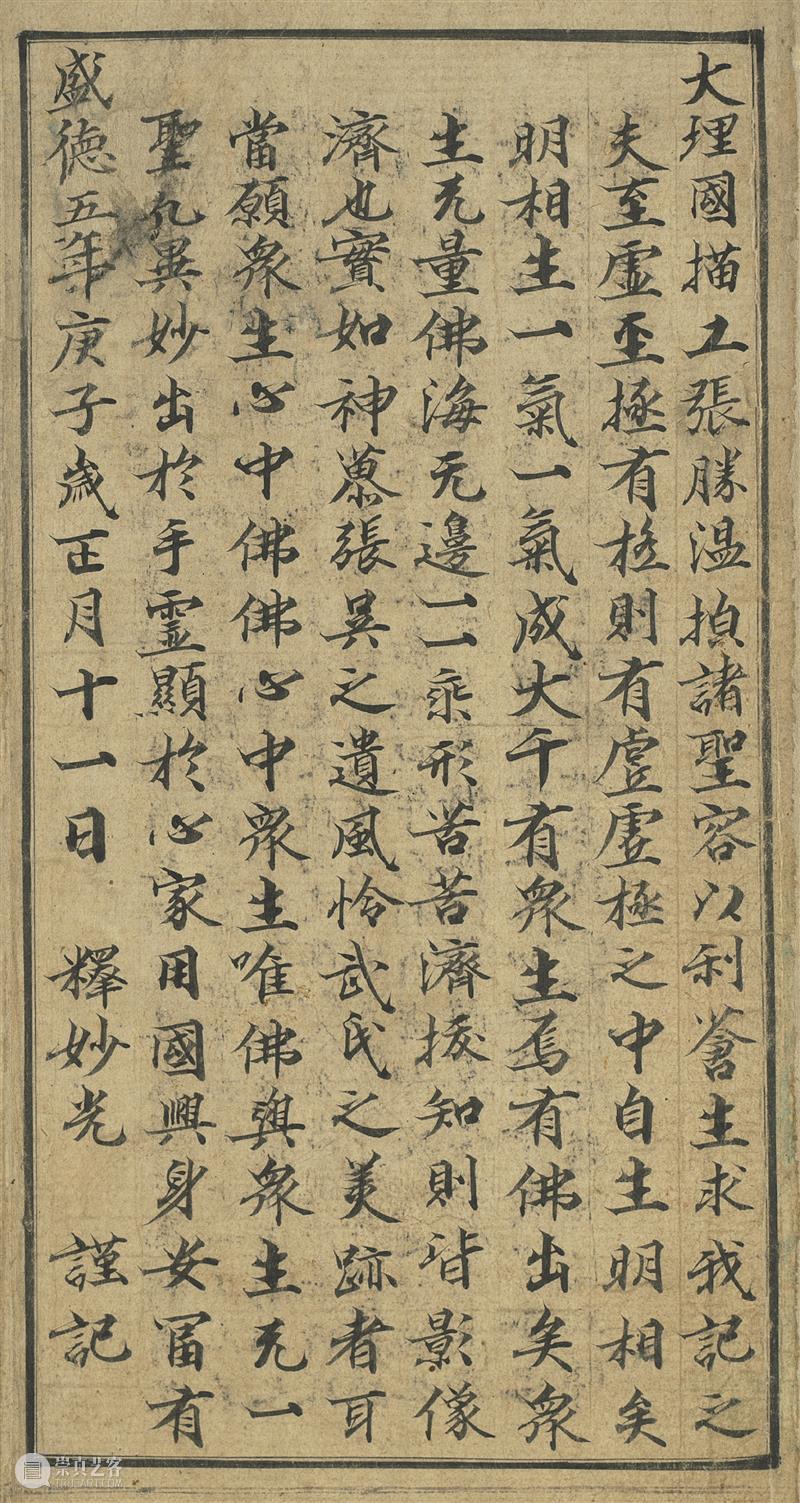 大理國描工張勝温描諸聖容以利蒼生求我記之
夫至虛至極有極則有虛虛極之中自生明相矣
明相生一氣一氣成大千有衆生焉有佛出矣衆
生无量佛海无邊一一乘形苦苦濟拔知則皆影像
濟也實如神慕張吳之遺風怜武氏之美跡者耳
當願衆生心中佛佛心中衆生唯佛與衆生无一
聖凡異妙出於手靈顯於心家用國興身安冨有
盛德五年庚子歲正月十一日 釋妙光 謹記
崇真艺客